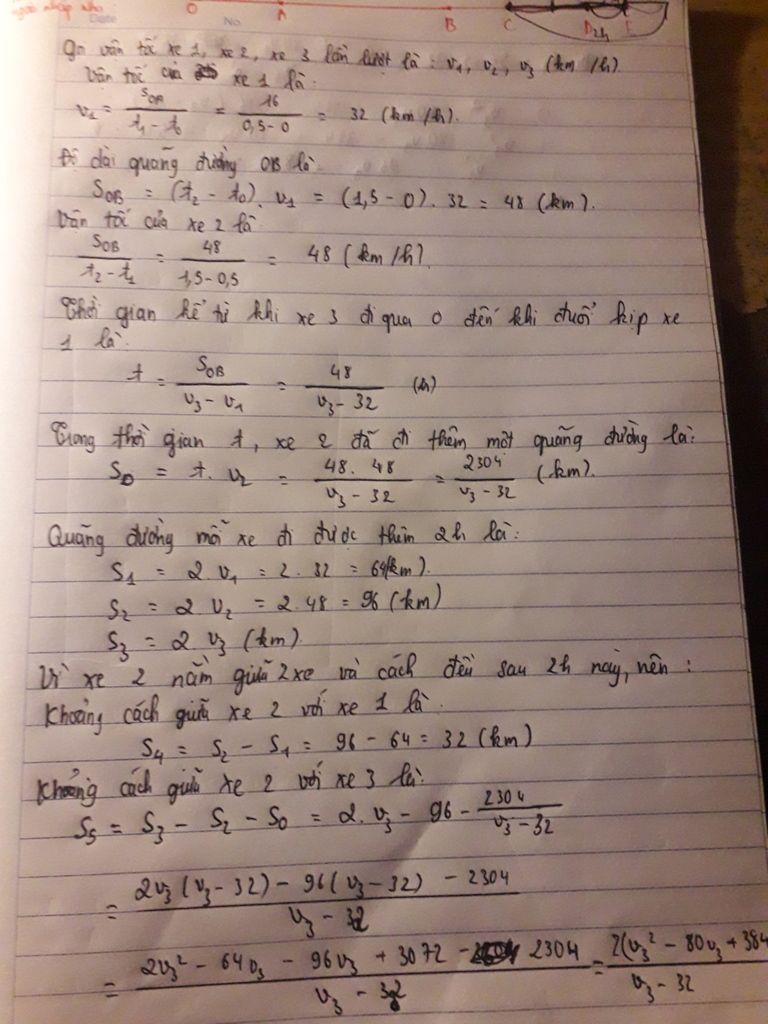 O A B C D 2h E
Date No
Gọi vận tốc xe 1, xe 2, xe 3 lần lượt là : v₁, v₂, v₃ (km/h).
Vận tốc của xe 1 là:
v₁ = S_OA / (t₁ - t₀) = 16 / (0,5 - 0) = 32 (km/h).
Độ dài quãng đường OB là
S_OB = (t₂ - t₀). v₁ = (1,5 - 0) . 32 = 48 (km).
Vận tốc của xe 2 là
S_OB / (t₂ - t₁) = 48 / (1,5 - 0,5) = 48 (km/h).
Thời gian kể từ khi xe 3 đi qua O đến khi đuổi kịp xe
1 là:
t = S_OB / (v₃ - v₁) = 48 / (v₃ - 32) (h)
Trong thời gian t, xe 2 đã đi thêm một quãng đường là:
S₀ = t. v₂ = 48. 48 / (v₃ - 32) = 2304 / (v₃ - 32) (km).
Quãng đường mỗi xe đi được thêm 2h là:
S₁ = 2. v₁ = 2. 32 = 64(km).
S₂ = 2 v₂ = 2. 48 = 96 (km)
S₃ = 2. v₃ (km).
Vì xe 2 nằm giữa 2 xe và cách đều sau 2h này, nên :
Khoảng cách giữa xe 2 với xe 1 là.
S₄ = S₂ - S₁ = 96 - 64 = 32 (km)
Khoảng cách giữa xe 2 với xe 3 là:
S₅ = S₃ - S₂ - S₀ = 2. v₃ - 96 - 2304 / (v₃ - 32)
= (2v₃ (v₃ - 32) - 96 (v₃ - 32) - 2304) / (v₃ - 32)
= (2v₃² - 64v₃ - 96v₃ + 3072 - 2304) / (v₃ - 32) = 2(v₃² - 80v₃ + 384 / (v₃ - 32)